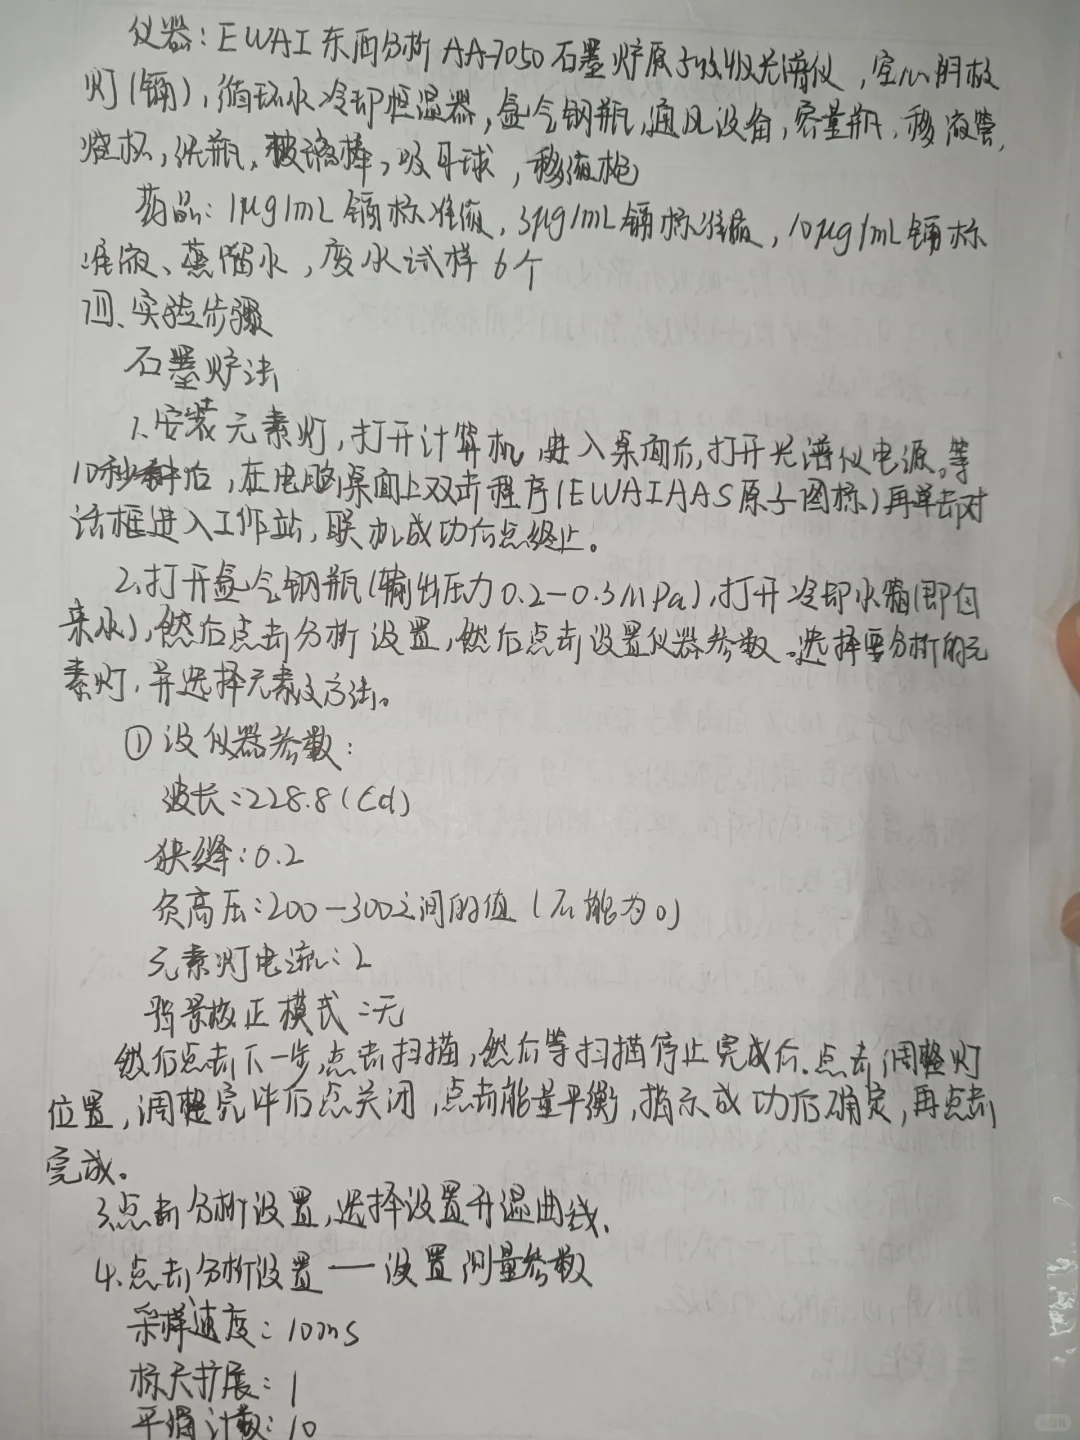 仪器：EWAI 东西分析 AA-7050 石墨炉原子吸收光谱仪，空心阴极
灯（镉），循环水冷却恒温器，氩气钢瓶，通风设备，容量瓶，移液管，
烧杯，洗瓶，玻璃棒，吸耳球，移液枪
药品：1μg/mL 镉标准液，3μg/mL 镉标准液，10μg/mL 镉标
准液、蒸馏水，废水试样 6个
四、实验步骤
石墨炉法
1、安装元素灯，打开计算机，进入桌面后，打开光谱仪电源。等
10秒钟后，在电脑桌面上双击程序（EWAI AAS 原子图标）再单击对
话框进入工作站，联机成功后点终止。
2、打开氩气钢瓶（输出压力0.2-0.3MPa），打开冷却水箱（即自
来水），然后点击分析设置，然后点击设置仪器参数。选择要分析的元
素灯，并选择元素及方法。
① 设仪器参数：
波长：228.8（Cd）
狭缝：0.2
负高压：200-300之间的值（不能为0）
元素灯电流：2
背景校正模式：无
然后点击下一步，点击扫描，然后等扫描停止完成后。点击调整灯
位置，调整完毕后点关闭，点击能量平衡，指示成功后确定，再点击
完成。
3、点击分析设置，选择设置升温曲线。
4、点击分析设置——设置测量参数
采样速度：100ms
标尺扩展：1
平滑计数：10